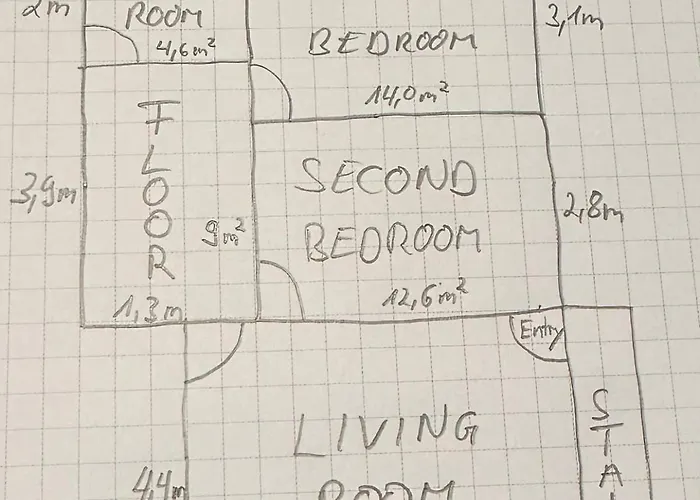 2m
ROOM
4,6m²
BEDROOM
14,0m²
3,1m
3,9m
FLOOR
9m²
1,3m
SECOND
BEDROOM
12,6m²
2,8m
Entry
LIVING
ROOM
4,4m
STA